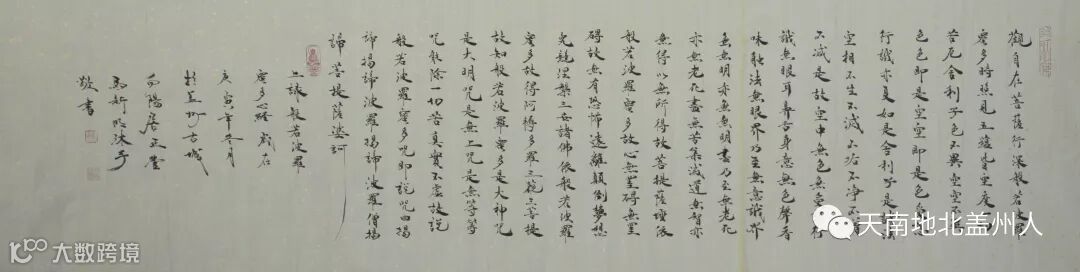 觀自在菩薩行深般若波羅
蜜多時照見五蘊皆空度一
苦厄舍利子色不異空空不
色色即是空空即是色受
行識亦復如是舍利子是諸法
空相不生不滅不垢不淨
不減是故空中無色無受想行
識無眼耳鼻舌身意無色聲香
味觸法無眼界乃至無意識界
無無明亦無無明盡乃至無老死
亦無老死盡無苦集滅道無智亦
無得以無所得故菩提薩埵依
般若波羅蜜多故心無罣礙無罣
礙故無有恐怖遠離顛倒夢想
究竟涅槃三世諸佛依般若波羅
蜜多故得阿耨多羅三藐三菩提
故知般若波羅蜜多是大神咒
是大明咒是無上咒是無等等
咒能除一切苦真實不虛故說
般若波羅蜜多咒即說咒曰揭
諦揭諦波羅揭諦波羅僧揭
諦菩提薩婆訶
上錄般若波羅
蜜多心經 歲在
庚寅年冬月
於蓋州古城
向陽居正堂
沐手
敬書
天南地北盖州人
大数跨境